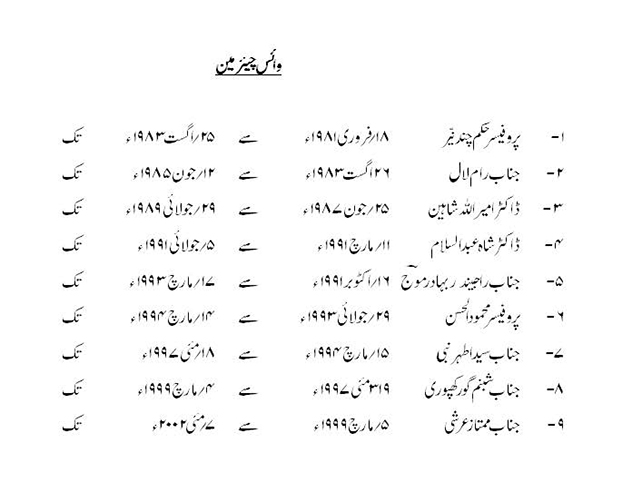 وائس چیئرمین
۱- پروفیسر حکم چند نیّر ۱۸؍فروری ۱۹۸۱ء سے ۲۵؍اگست ۱۹۸۳ء تک
۲- جناب رام لال ۲۶اگست ۱۹۸۳ء سے ۱۲؍جون ۱۹۸۵ء تک
۳- ڈاکٹر امیر اللہ شاہین ۲۵؍جون ۱۹۸۷ء سے ۲۹؍جولائی ۱۹۸۹ء تک
۴- ڈاکٹر شاہ عبدالسلام ۱۱؍مارچ ۱۹۹۱ء سے ۵؍جولائی ۱۹۹۱ء تک
۵- جناب راجیندر بہادر موج ۱۶؍اکتوبر ۱۹۹۱ء سے ۱۷؍مارچ ۱۹۹۳ء تک
۶- پروفیسر محمودالحسن ۲۹؍جولائی ۱۹۹۳ء سے ۱۴؍مارچ ۱۹۹۴ء تک
۷- جناب سید اطہر نبی ۱۵؍مارچ ۱۹۹۴ء سے ۱۸؍مئی ۱۹۹۷ء تک
۸- جناب شبنم گورکھپوری ۱۹؍مئی ۱۹۹۷ء سے ۴؍مارچ ۱۹۹۹ء تک
۹- جناب ممتاز عرشی ۵؍مارچ ۱۹۹۹ء سے ۷؍مئی ۲۰۰۲ء تک